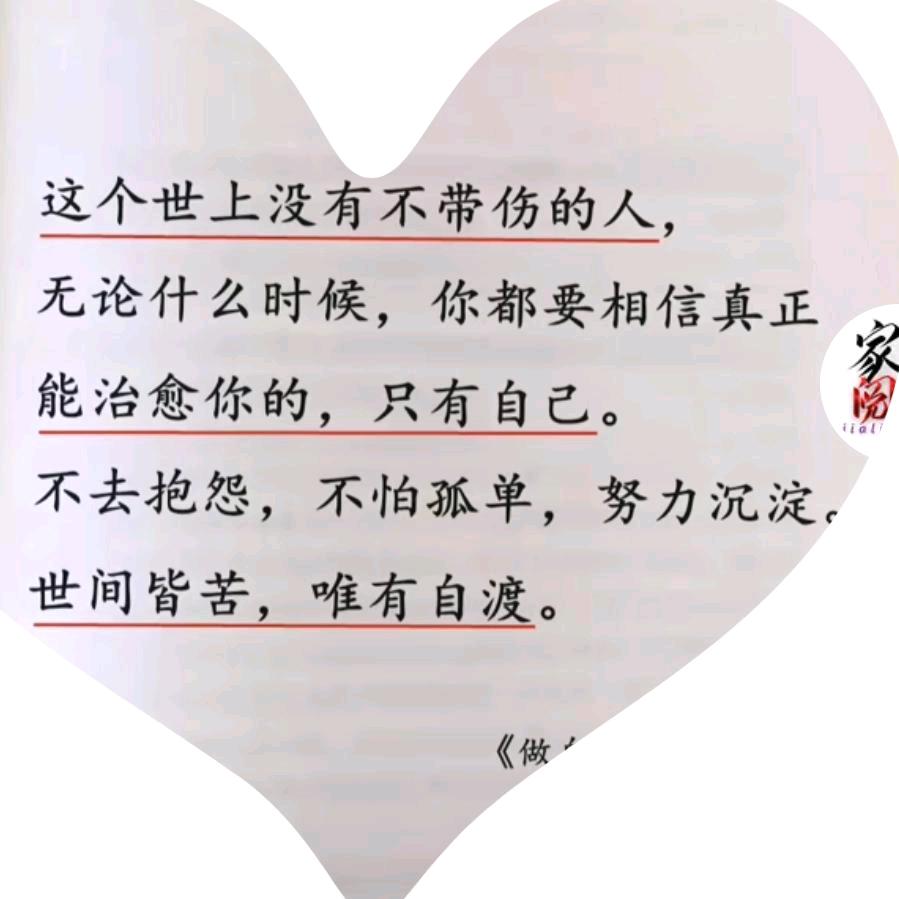 这个世上没有不带伤的人，
无论什么时候，你都要相信真正
能治愈你的，只有自己。
不去抱怨，不怕孤单，努力沉淀。
世间皆苦，唯有自渡。
《做
家
阅